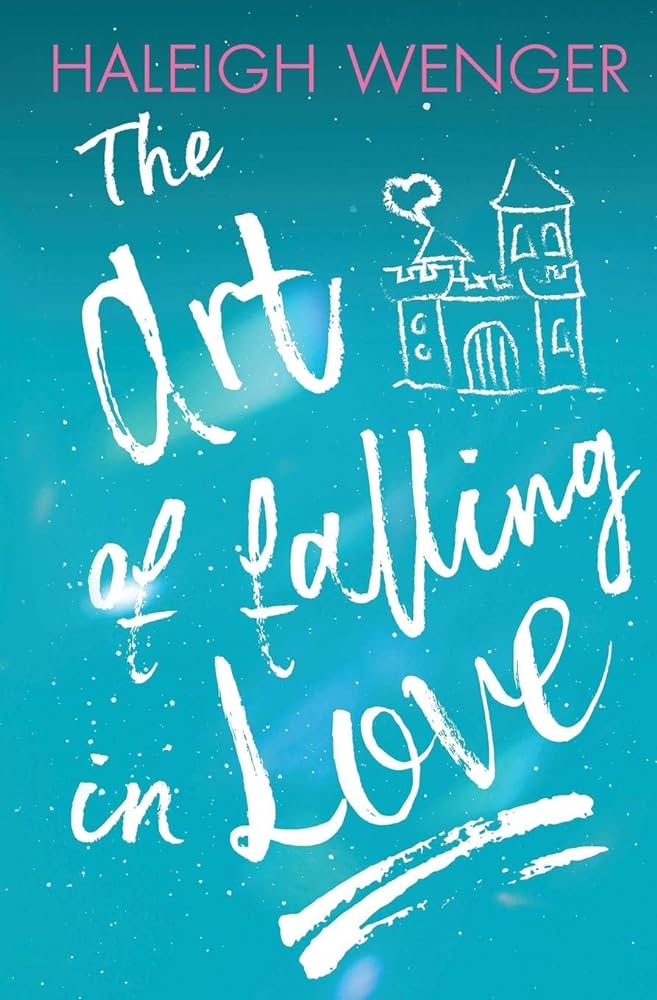 HALEIGH WENGER
The
Art
of falling
in Love